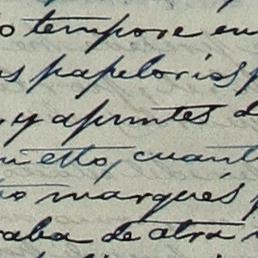 o tempore en
s papelorios p
y apuntes d
esto, cuant
o marqués
raba de otra